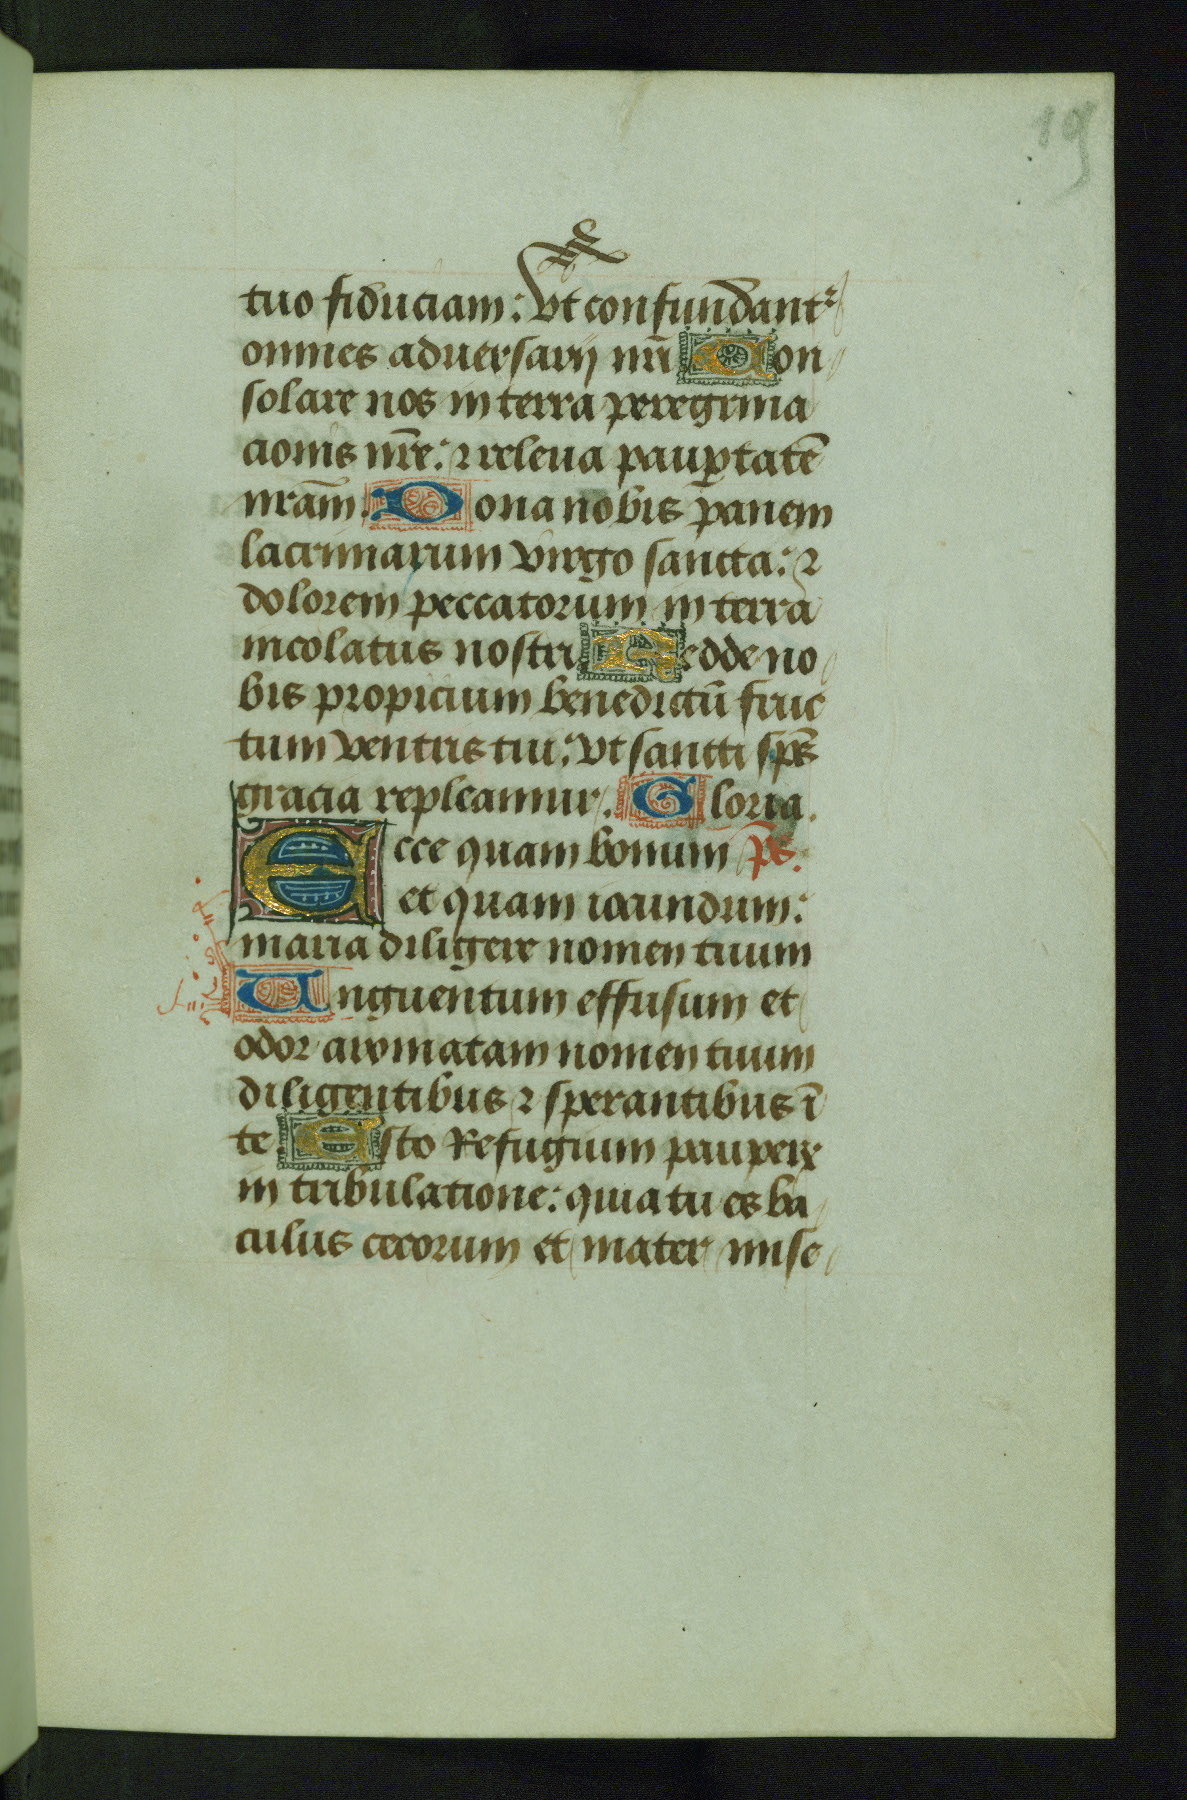 19
tuo fiduciam: Vt confundantꝛ
omnes aduersarij nr̄i Con
solare nos in terra peregrina
cionis nr̄e: ⁊ releua pauꝑtatē
nr̄am. Dona nobis panem
lacrimarum virgo sancta: ⁊
dolorem peccatorum in terra
incolatus nostri Redde no
bis propicium benedictū fruc
tum ventris tui: vt sancti sp̄s
gracia repleamur. Gloria.
Ecce quam bonum p̄s.
et quam iocundum:
maria diligere nomen tuum
Unguentum effusum et
odor aromatam nomen tuum
diligentibus ⁊ sperantibus ī
te. Esto Refugium pauperꝝ
in tribulatione: quia tu es ba
culus cecorum et mater mise